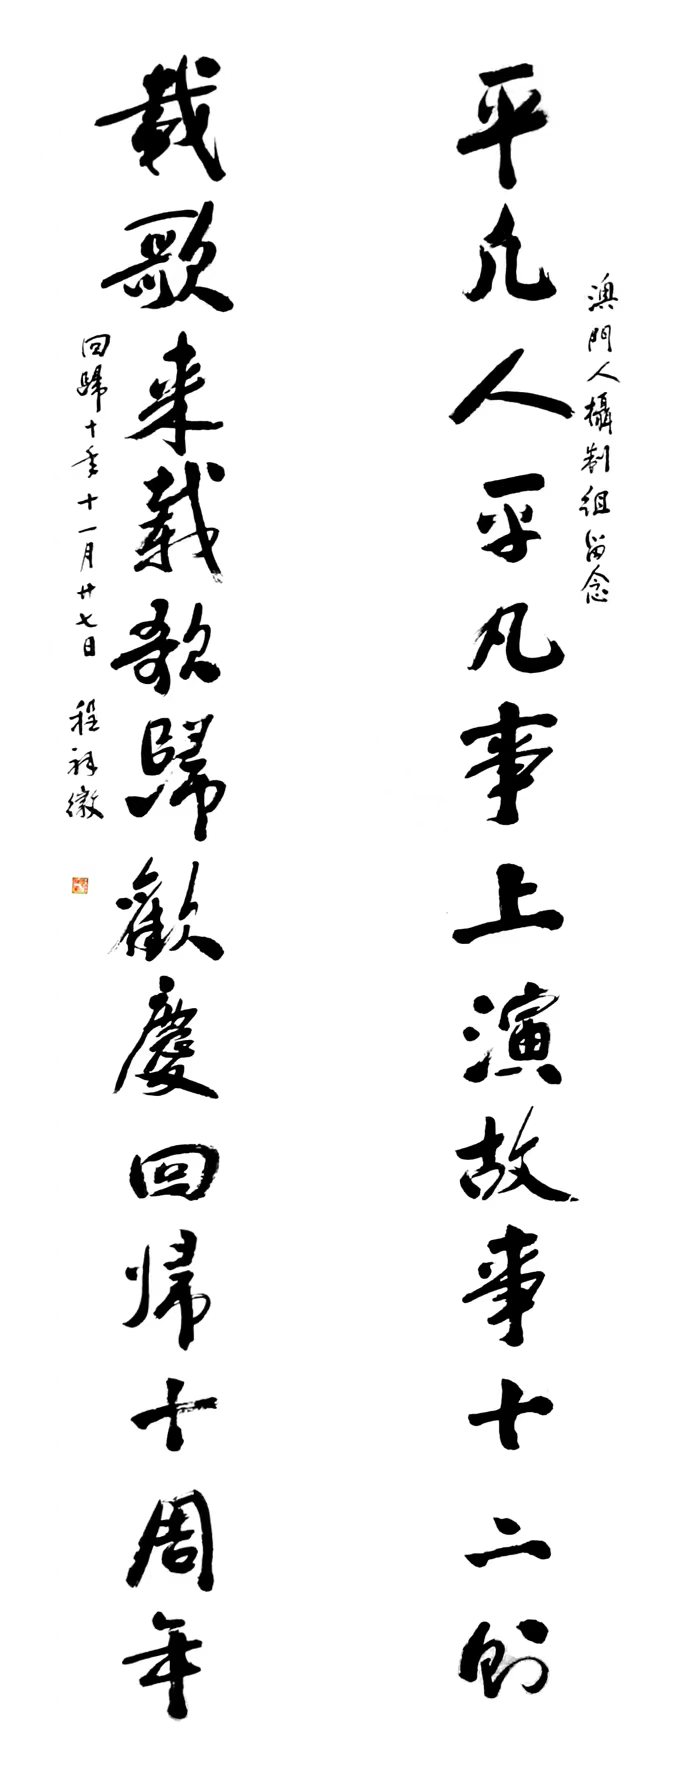 澳門人攝制組留念
平凡人平凡事上演故事十二則
載歌来載歌歸歡慶回歸十周年
回歸十年十一月廿七日 程祥徽